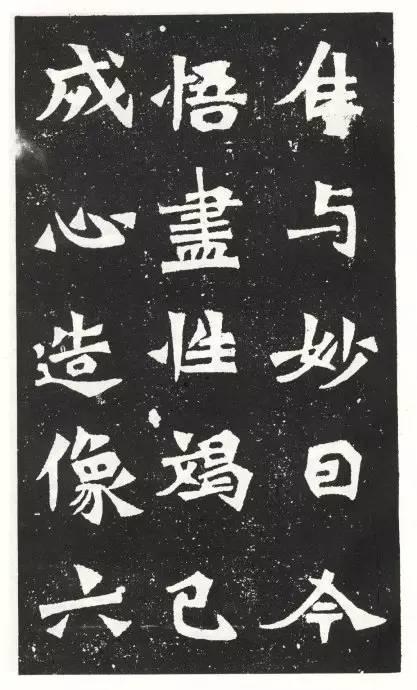 隹与妙日今
悟盡性竭己
成心造像六